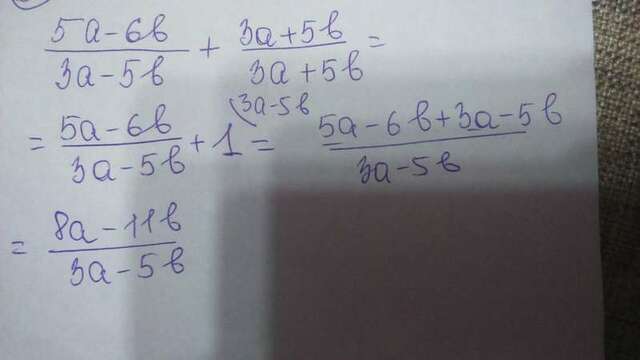 (5a-6b)/(3a-5b) + (3a+5b)/(3a+5b) =
= (5a-6b)/(3a-5b) + 1 (3a-5b = (5a-6b+3a-5b)/(3a-5b)
= (8a-11b)/(3a-5b)